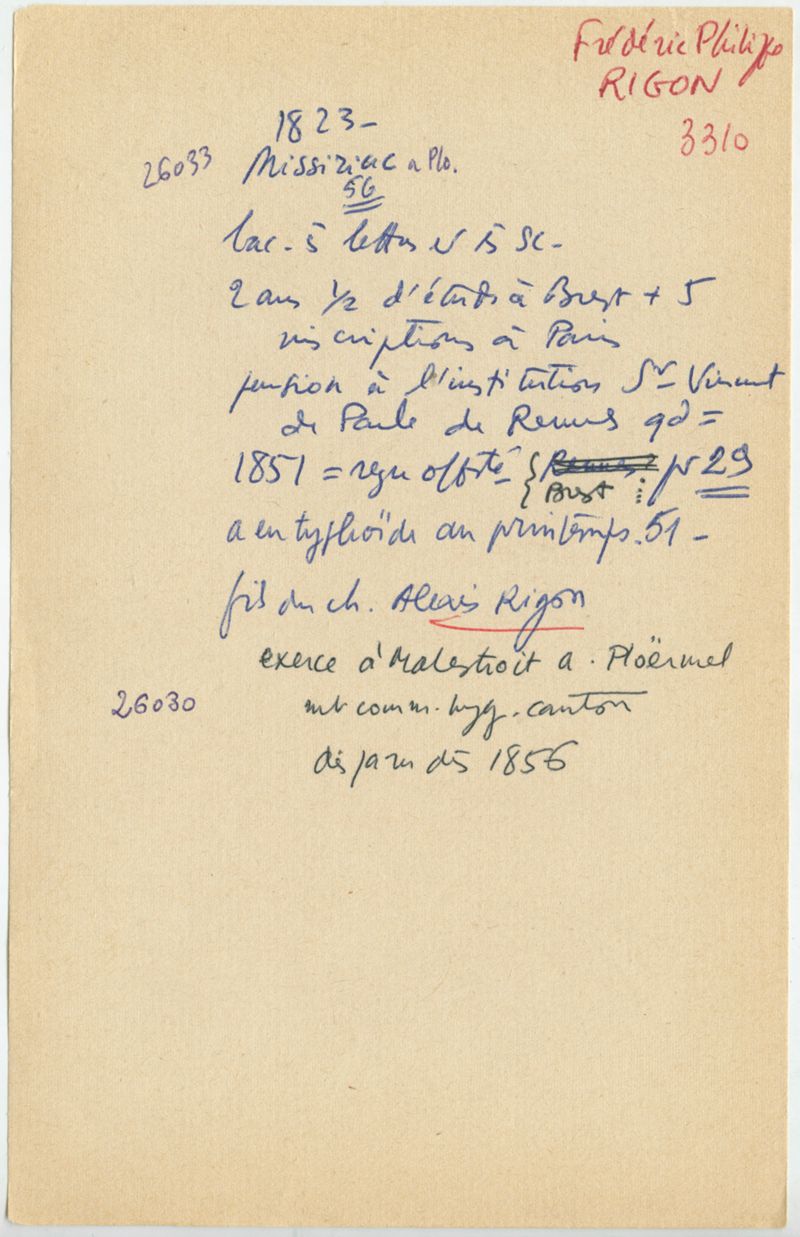 Frédéric Philippe
RIGON
3310
1823-
26033 Missiriac a Plo.
56
bac. ès lettres et ès Sc-
2 ans 1/2 d'études à Brest + 5
inscriptions à Paris
pension à l'institution St Vincent
de Paule de Rennes qd =
1851 = reçu off. té {Rennes? pr 29
Brest
a eu typhoïde au printemps.51-
fils du ch. Alexis Rigon
exerce à Malestroit a. Ploërmel
26030 mb comm. hyg. canton
disparu dès 1856